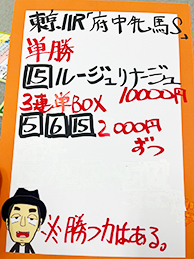 東京11R「府中牝馬S」
単勝
⑮ルージュリナージュ
10000円
3連単BOX
⑤⑥⑮2000円
ずつ
※勝つ力はある。